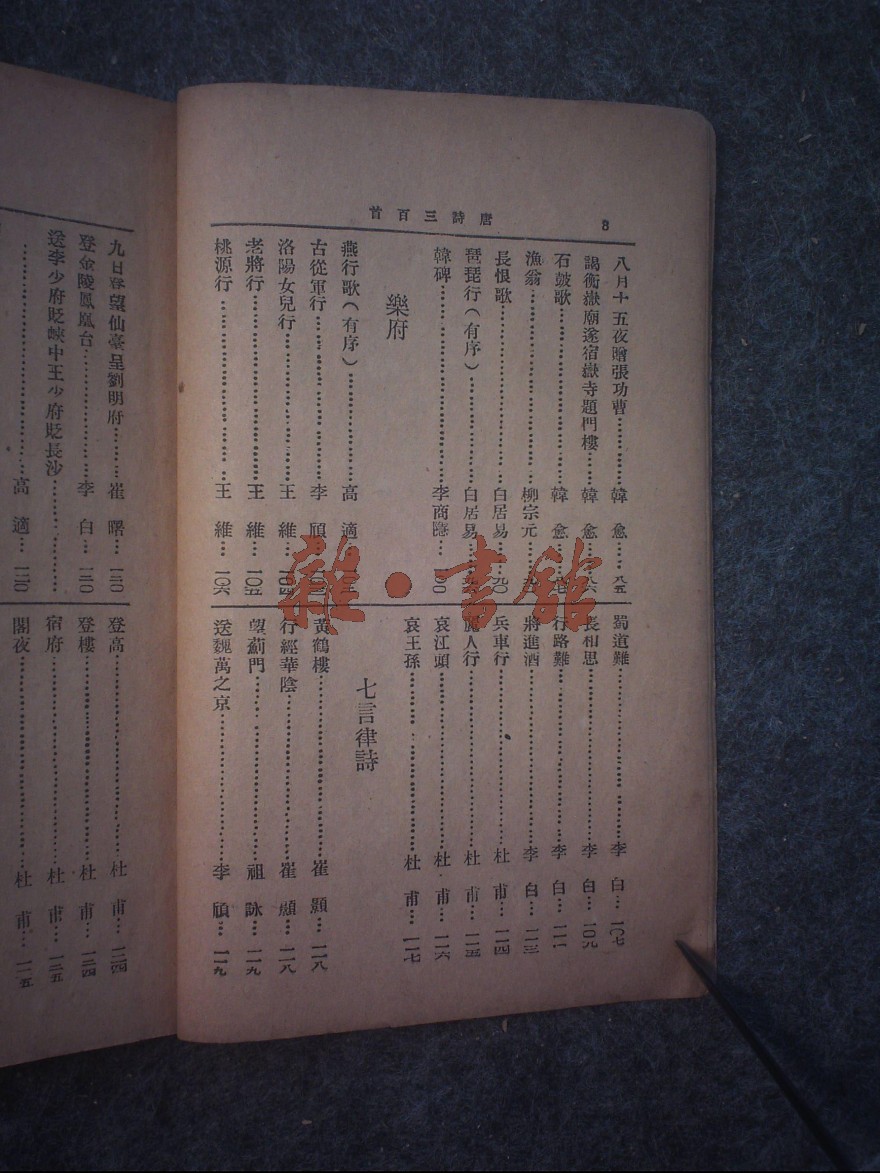 唐詩三百首
8
八月十五夜贈張功曹 韓愈 八五
謁衡嶽廟遂宿嶽寺題門樓 韓愈 八六
石鼓歌 韓愈
漁翁 柳宗元
長恨歌 白居易 九〇
琵琶行（有序） 白居易
韓碑 李商隱
樂府
燕行歌（有序） 高適
古從軍行 李頎
洛陽女兒行 王維 一〇四
老將行 王維 一〇五
桃源行 王維 一〇六
蜀道難 李白 一〇七
長相思 李白 一〇九
行路難 李白 一一一
將進酒 李白 一一三
兵車行 杜甫 一一四
麗人行 杜甫 一一五
哀江頭 杜甫 一一六
哀王孫 杜甫 一一七
七言律詩
黃鶴樓 崔顥 一一八
行經華陰 崔顥 一一八
望薊門 祖詠 一一九
送魏萬之京 李頎 一一九
九日登望仙臺呈劉明府 崔曙 一二〇
登金陵鳳凰台 李白 一二〇
送李少府貶峽中王少府貶長沙
高適 一二〇
登高 杜甫 一二四
登樓 杜甫 一二四
宿府 杜甫 一二五
閣夜 杜甫 一二五
雜·書館